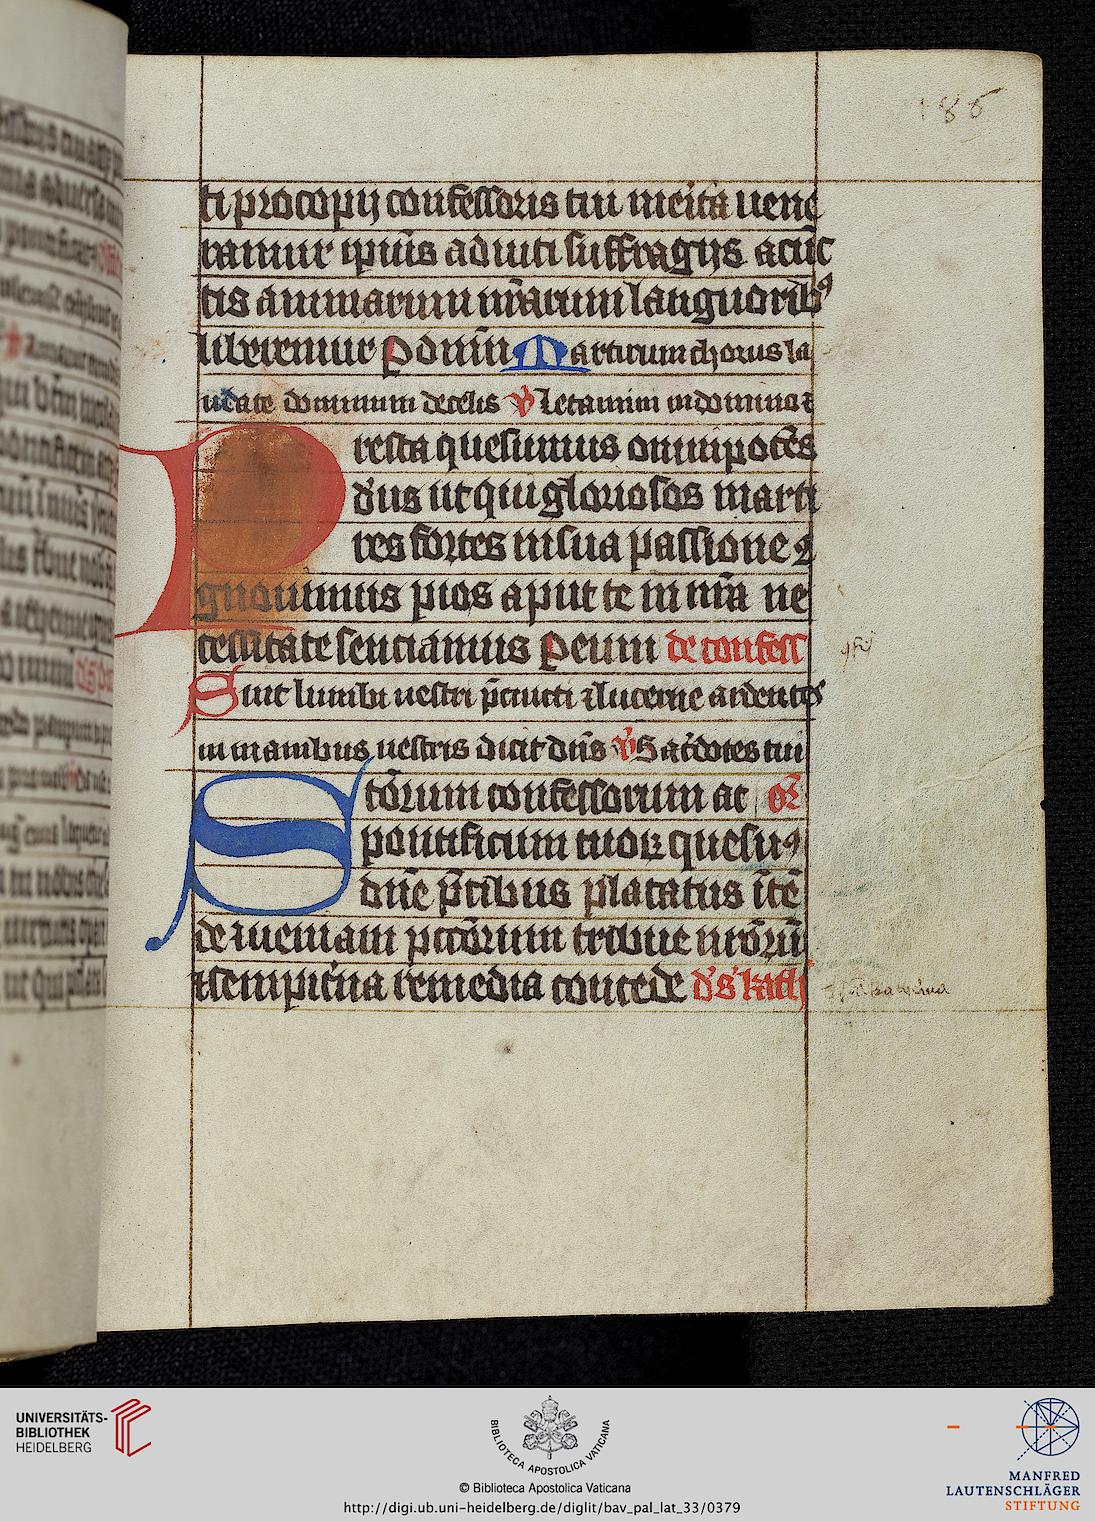 186
ti procopij confessoris tui me͛ita uene
ramur ipi͛us adiuti suffragijs a cu͛c
tis animarum nr̄arum languorib⁹
liberemur ꝑ domī Martirum chorus la
udate dominum de celis ℣ Letamini in domino ⁊
Presta quesumus omnipotēs
d͛us ut qui gloriosos marti
res fortes in sua passione ꝯ
gnouimus pios aput te in nr̄a ne
cessitate senciamus ꝑ eum de confess
Sint lumbi uestri p̄cincti ⁊ lucerne ardentes
in manibus uestris dicit dn̄s ℣ Sac͛dotes tui
Sc̄torum confessorum ac or͛
pontificum tuoꝝ quesum⁹
dn̄e p͛cibus placatus ⁊ te͛
de ueniam pcc̄orum tribue nr̄oru͛
⁊ sempit͛na remedia concede d͛ s͛ kath͛
UNIVERSITÄTS-
BIBLIOTHEK
HEIDELBERG
BIBLIOTECA APOSTOLICA VATICANA
© Biblioteca Apostolica Vaticana
http://digi.ub.uni-heidelberg.de/diglit/bav_pal_lat_33/0379
MANFRED
LAUTENSCHLÄGER
STIFTUNG